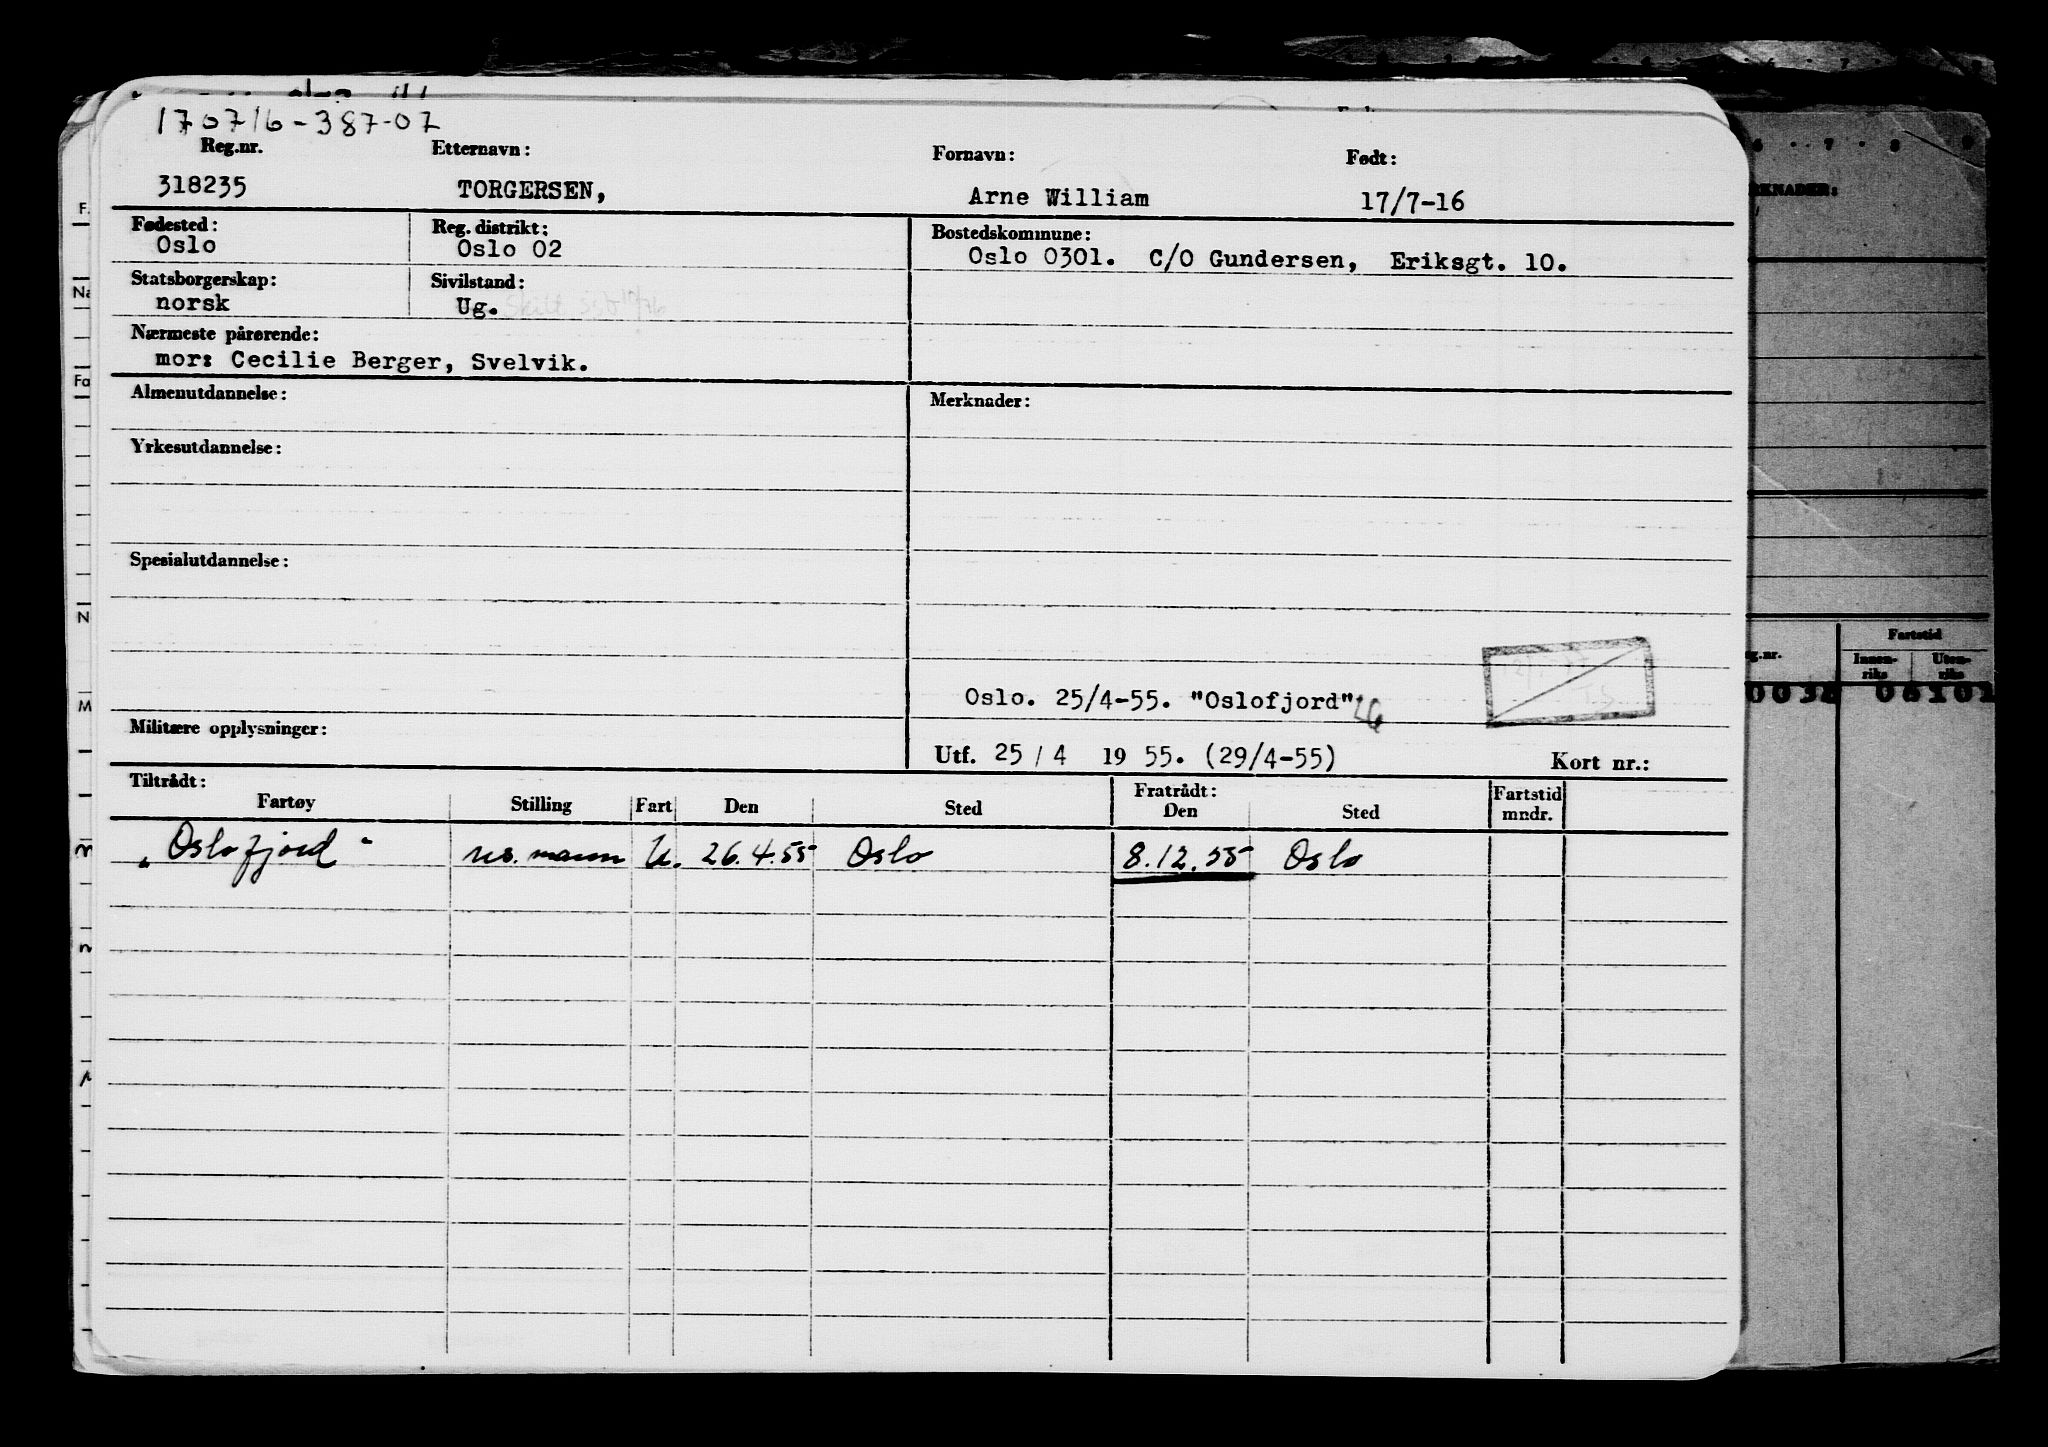 170716-387-07
Reg.nr. Etternavn: Fornavn: Født:
318235 TORGERSEN, Arne William 17/7-16
Fødested: Reg. distrikt: Bostedskommune:
Oslo Oslo 02 Oslo 0301. C/O Gundersen, Eriksgt. 10.
Statsborgerskap: Sivilstand:
norsk Ug. Skilt
Nærmeste pårørende:
mor: Cecilie Berger, Svelvik.
Almenutdannelse: Merknader:
Yrkesutdannelse:
Spesialutdannelse:
Oslo. 25/4-55. "Oslofjord"
Militære opplysninger:
Utf. 25 / 4 19 55. (29/4-55) Kort nr.:
Tiltrådt: Fratrådt:
Fartøy Stilling Fart Den Sted Den Sted Fartstid mndr.
"Oslofjord" res. mann U. 26.4.55 Oslo 8.12.55 Oslo
6 . 7 . 8 9
KNADER:
Fartstid
g.nr. Innen-riks Uten-riks
0038 06101